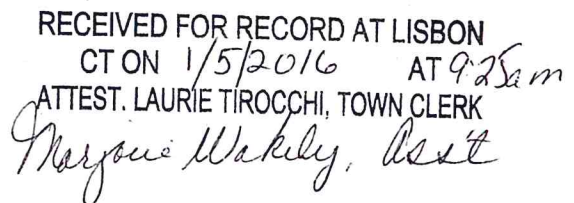 RECEIVED FOR RECORD AT LISBON
CT ON 1/5/2016 AT 9:25am
ATTEST. LAURIE TIROCCHI, TOWN CLERK
Marjorie Wakely, Ass't